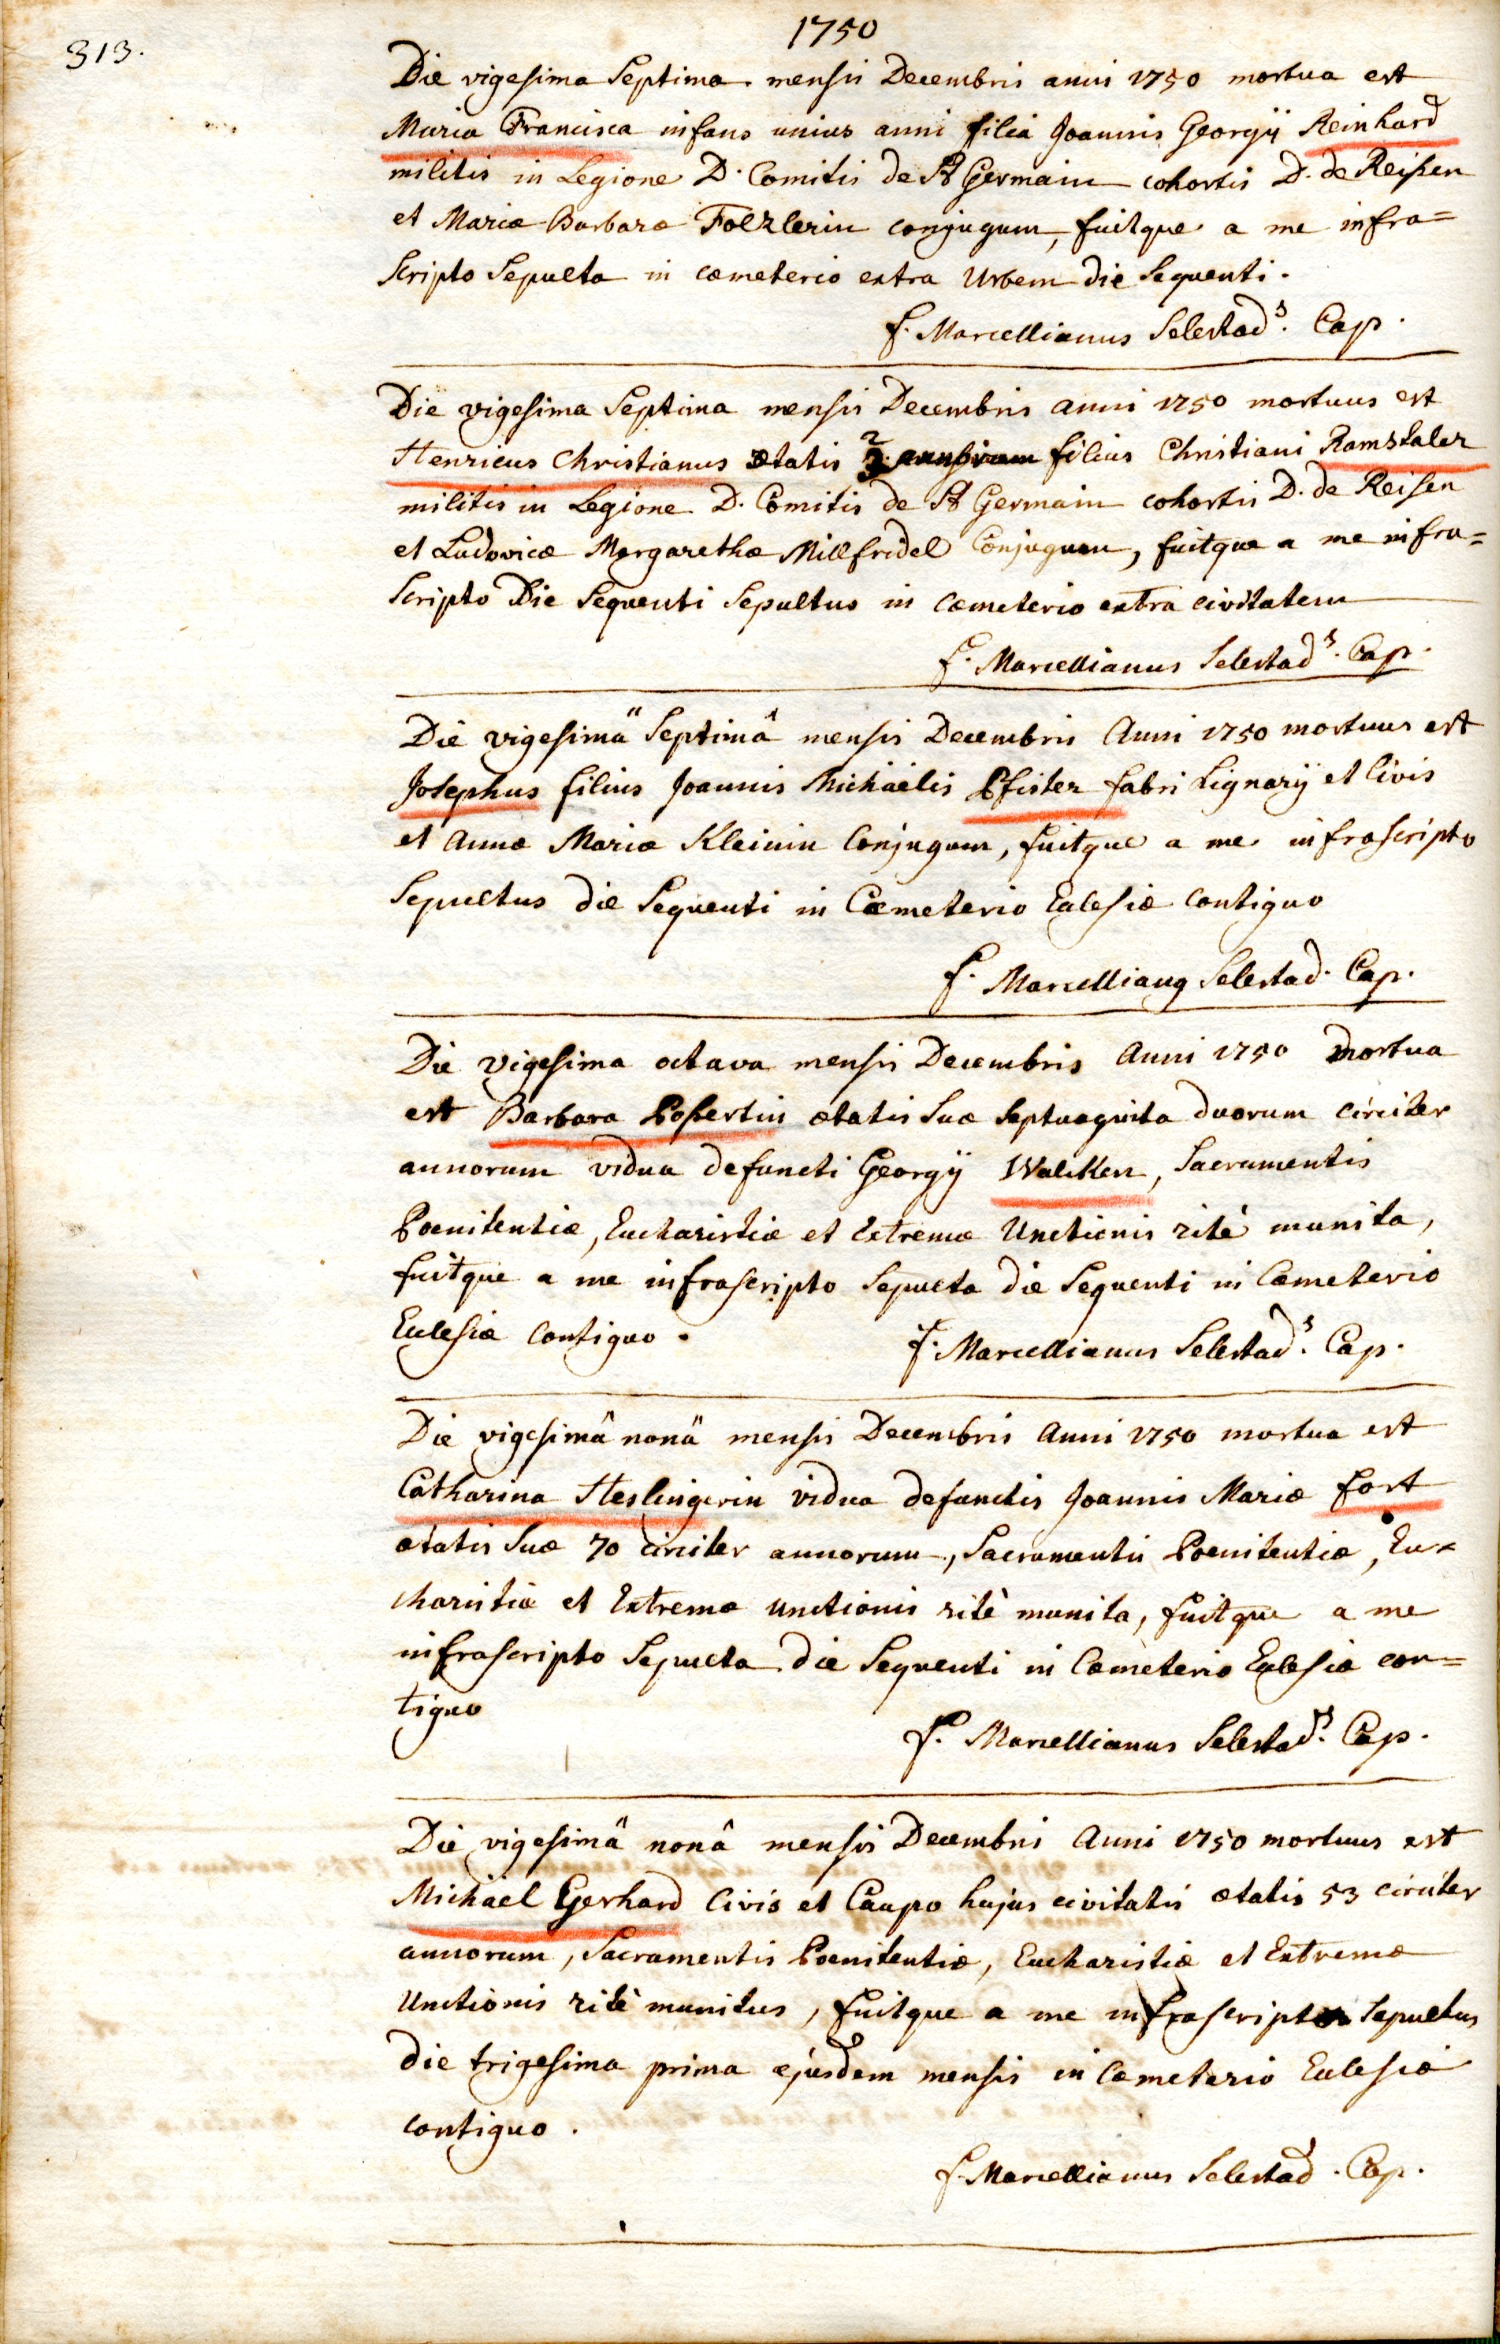 1750
313.
Die vigesima Septima mensis Decembris anni 1750 mortua est
Maria Francisca infans unius anni filia Joannis Georgij Reinhard
militis in Legione D. Comitis de St Germain cohortis D. de Reisen
et Mariæ Barbaræ Foelzlerin conjugum, fuitque a me infra=
scripto Sepulta in cæmeterio extra Urbem die Sequenti.
f. Marcellianus Selestad.s Cap.
Die vigesima Septima mensis Decembris anni 1750 mortuus est
Henricus Christianus ætatis 2 filius Christiani Ramstaler
militis in Legione D. Comitis de St Germain cohortis D. de Reisen
et Ludovicæ Margarethæ Millfridel Conjugum, fuitque a me infra=
scripto Die Sequenti Sepultus in Cæmeterio extra civitatem
f. Marcellianus Selestad.s Cap.
Die vigesimâ Septimâ mensis Decembris Anni 1750 mortuus est
Josephus filius Joannis Michaëlis Pfister fabri Lignarij et Civis
et Annæ Mariæ Kleinin Conjugum, fuitque a me infrascripto
Sepultus die Sequenti in Cæmeterio Eclesiæ Contiguo
f. Marcellianus Selestad. Cap.
Die Vigesima octava mensis Decembris Anni 1750 Mortua
est Barbara Possertin ætatis Suæ Septuaginta duorum circiter
annorum vidua defuncti Georgij Walcker, Sacramentis
Poenitentiæ, Eucharistiæ et Extremæ Unctionis ritè munita,
fuitque a me infrascripto Sepulta die Sequenti in Cæmeterio
Eclesiæ Contiguo.
f. Marcellianus Selestad.s Cap.
Die vigesimâ nonâ mensis Decembris Anni 1750 mortua est
Catharina Heslingerin vidua defunctis Joannis Mariæ Fort
ætatis Suæ 70 circiter annorum, Sacramentis Poenitentiæ, Eu=
charistiæ et Extremæ unctionis ritè munita, fuitque a me
infrascripto Sepulta die Sequenti in Cæmeterio Eclesiæ con=
tiguo
f. Marcellianus Selestad.s Cap.
Die vigesimâ nonâ mensis Decembris Anni 1750 mortuus est
Michäel Gerhard Civis et Caupo hujus civitatis ætatis 53 circiter
annorum, Sacramentis Poenitentiæ, Eucharistiæ et Extremæ
Unctionis ritè munitus, fuitque a me infrascripto Sepultus
die trigesima prima ejusdem mensis in Cæmeterio Eclesiæ
contiguo.
f. Marcellianus Selestad. Cap.